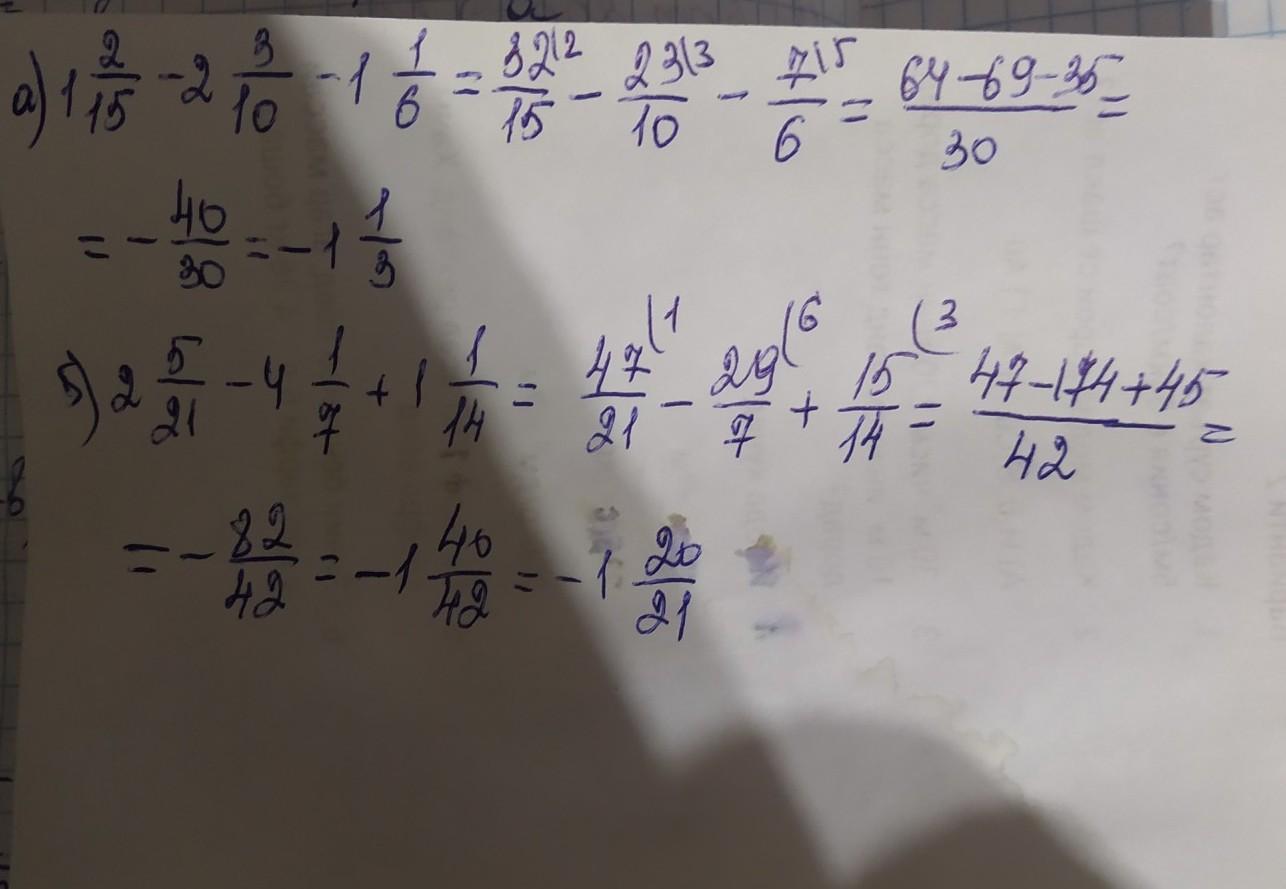 а) 1 2/15 - 2 3/10 - 1 1/6 = 32\2/15 - 23\3/10 - 7\5/6 = 64-69-35/30 =
= - 40/30 = -1 1/3
б) 2 5/21 - 4 1/7 + 1 1/14 = 47(1/21 - 29(6/7 + 15(3/14 = 47-174+45/42 =
= - 82/42 = -1 40/42 = -1 20/21